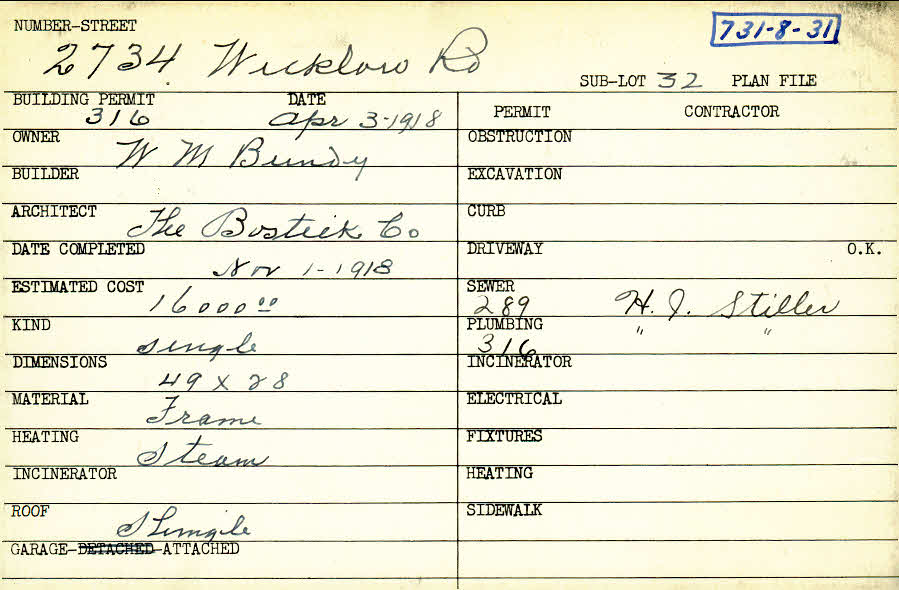 NUMBER-STREET
731-8-31
2734 Wicklow Rd
SUB-LOT 32 PLAN FILE
BUILDING PERMIT DATE
316 Apr 3-1918
OWNER
W M Bundy
BUILDER
ARCHITECT
The Bostick Co
DATE COMPLETED
Nov 1-1918
ESTIMATED COST
16000 00
KIND
single
DIMENSIONS
49 x 28
MATERIAL
Frame
HEATING
Steam
INCINERATOR
ROOF
Shingle
GARAGE-DETACHED-ATTACHED
PERMIT CONTRACTOR
OBSTRUCTION
EXCAVATION
CURB
DRIVEWAY O.K.
SEWER
289 H. J. Stiller
PLUMBING " "
316
INCINERATOR
ELECTRICAL
FIXTURES
HEATING
SIDEWALK